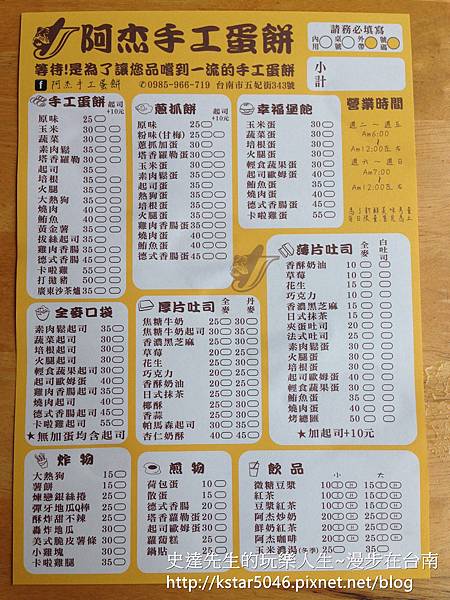 阿杰手工蛋餅
請務必填寫
內用 桌號 外帶 號碼
等待!是為了讓您品嚐到一流的手工蛋餅
小計
f 阿杰手工蛋餅 ✆0985-966-719 台南市五妃街343號
手工蛋餅 起司+10元
原味 25
玉米 30
蔬菜 30
素肉鬆 35
塔香蘿勒 30
起司 35
培根 35
火腿 35
大熱狗 35
燒肉 40
鮪魚 40
黃金薯 35
拔絲起司 35
雞肉香腸 35
德式香腸 45
卡啦雞 55
打拋豬
廣東沙茶爐 35
蔥抓餅 起司+10元
原味 25
粉味(甘梅) 25
蔥抓加蛋 30
塔香羅勒蛋 30
玉米蛋 35
素肉鬆蛋 35
起司蛋 35
熱狗蛋 35
培根蛋 35
火腿蛋 35
雞肉香腸蛋 35
燒肉蛋 40
鮪魚蛋 40
德式香腸蛋 45
幸福堡飽 起司+10元
玉米蛋 30
蔬菜蛋 30
培根蛋 30
火腿蛋 30
輕食蔬果蛋 30
起司歐姆蛋 30
鮪魚蛋 35
燒肉蛋 35
雞肉香腸蛋 35
德式香腸蛋 45
卡啦雞蛋 55
營業時間
週二~週五
Am6:00
Am12:00左右
週六~週日
Am7:00
Am12:00左右
全麥口袋
素肉鬆起司 35
蔬菜起司 30
培根起司 30
火腿起司 30
輕食蔬果起司 30
起司歐姆蛋 30
雞肉香腸起司 35
燒肉起司 40
德式香腸起司 45
卡啦雞起司 55
★無加蛋均含起司
厚片吐司 全麥 丹麥
焦糖牛奶 25
焦糖牛奶起司 30
香濃黑芝麻 25
草莓 20
花生 20
巧克力 20
香酥奶油 20
日式抹茶 20
椰酥 20
香蒜 20
帕馬森起司 30
杏仁奶酥 30
薄片吐司 全麥 白吐司
香酥奶油 10
草莓 10
花生 10
巧克力 10
香濃黑芝麻 15
日式抹茶 15
夾蛋吐司 20
法式吐司 25
素肉鬆蛋 30
火腿蛋 30
培根蛋 30
起司歐姆蛋 30
輕食蔬果蛋 30
鮪魚蛋 35
燒肉蛋 35
烤總匯 50
★加起司+10元
炸物
大熱狗 15
薯餅 15
煉戀銀絲捲 20
彈牙地瓜Q棒 20
酥炸甜不辣 25
轟炸地瓜 25
美式脆皮薯條 30
小雞塊 30
卡啦雞腿 35
煎物
荷包蛋 10
散蛋 15
德式香腸 20
塔香蘿勒蛋 20
起司歐姆蛋 30
蘿蔔糕 25
鍋貼 25
飲品 小 大
微糖豆漿
紅茶
豆漿紅茶
阿杰炒奶
鮮奶紅茶
阿杰咖啡
玉米濃湯(冬季)
史達先生的玩樂人生~漫步在台南
http://kstar5046.pixnet.net/blog